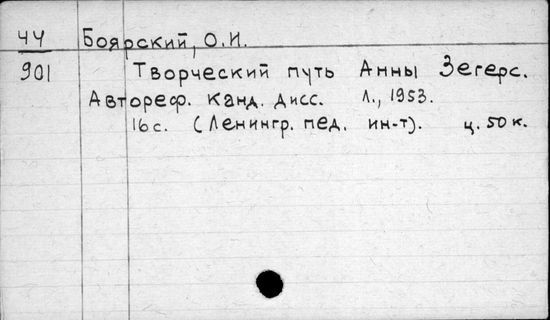 44 Боярский, О.И.
901 Творческий путь Анны Зегерс.
Автореф. канд. дисс. Л., 1953.
16 с. (Ленингр. пед. ин-т). ц. 50 к.